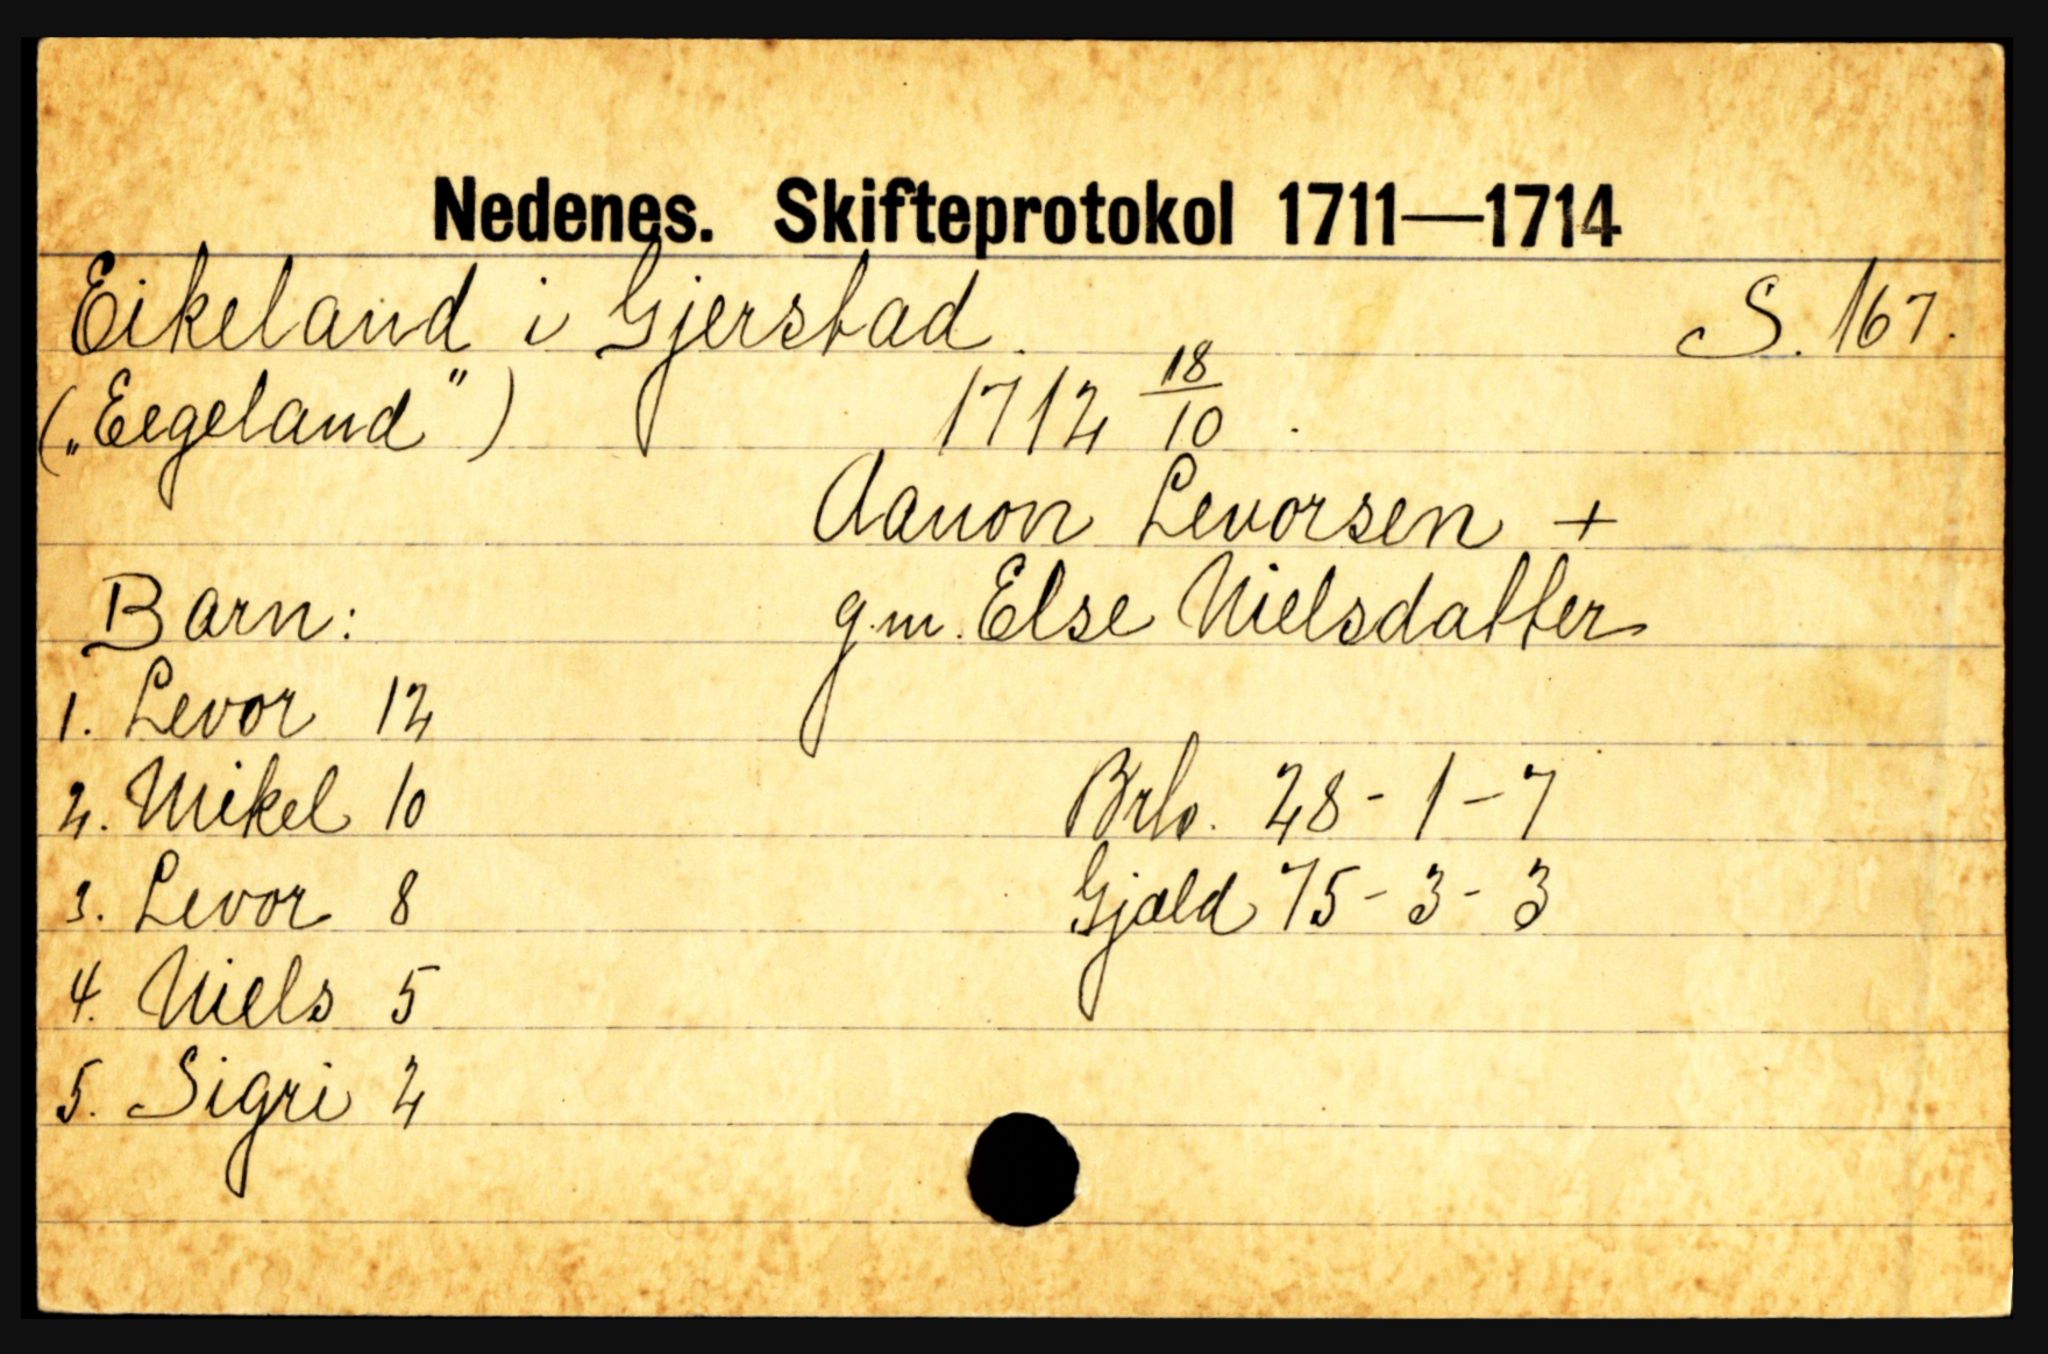 Nedenes. Skifteprotokol 1711—1714
Eikeland i Gjerstad. S. 167.
(„Eegeland") 1712 18/10.
Aanon Levorsen +
Barn: g.m. Else Nielsdatter
1. Levor 12
2. Mikel 10 Brto. 28-1-7
3. Levor 8 Gjæld 75-3-3
4. Niels 5
5. Sigri 2